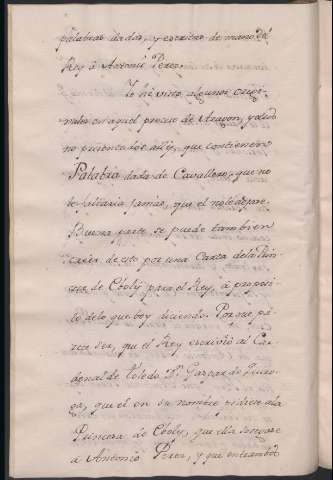 palabras dadas, y escritas de mano del
Rey à Antonio Perez.
Yo hè visto algunos origi-
nales en aquel proceso de Aragon, y otros
no presentados alli, que contienen
Palabra dada de Cavallero, que no
le faltaria jamàs, que el no le dejare.
Buena parte se puede tambien
caer de esto por una Carta de la Prin-
cesa de Eboly para el Rey, à proposi-
to de lo que boy diciendo. Porque pa-
rece ser, que el Rey escrivió al Car-
denal de Toledo Dn. Gaspar de Quiro-
ga, que el en su nombre pidiese à la
Princesa de Eboly, que ella
à Antonio Perez, y que entrambos